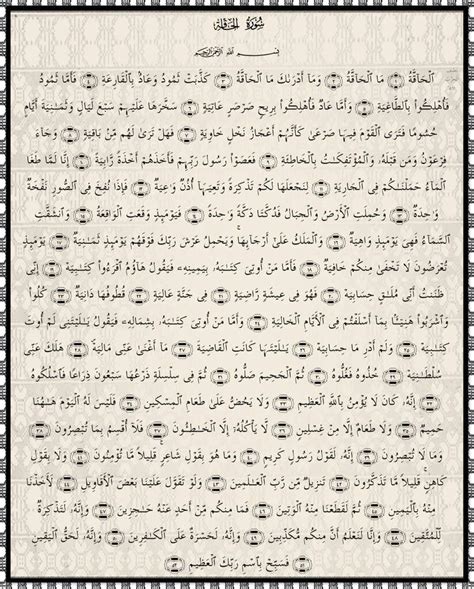 سُورَةُ الحَاقَّةِ
بِسْمِ ٱللَّهِ ٱلرَّحْمَٰنِ ٱلرَّحِيمِ
ٱلْحَآقَّةُ ١ مَا ٱلْحَآقَّةُ ٢ وَمَآ أَدْرَىٰكَ مَا ٱلْحَآقَّةُ ٣ كَذَّبَتْ ثَمُودُ وَعَادٌۢ بِٱلْقَارِعَةِ ٤ فَأَمَّا ثَمُودُ
فَأُهْلِكُوا۟ بِٱلطَّاغِيَةِ ٥ وَأَمَّا عَادٌ فَأُهْلِكُوا۟ بِرِيحٍ صَرْصَرٍ عَاتِيَةٍ ٦ سَخَّرَهَا عَلَيْهِمْ سَبْعَ لَيَالٍ وَثَمَٰنِيَةَ أَيَّامٍ
حُسُومًا فَتَرَى ٱلْقَوْمَ فِيهَا صَرْعَىٰ كَأَنَّهُمْ أَعْجَازُ نَخْلٍ خَاوِيَةٍ ٧ فَهَلْ تَرَىٰ لَهُم مِّنۢ بَاقِيَةٍ ٨ وَجَآءَ
فِرْعَوْنُ وَمَن قَبْلَهُۥ وَٱلْمُؤْتَفِكَٰتُ بِٱلْخَاطِئَةِ ٩ فَعَصَوْا۟ رَسُولَ رَبِّهِمْ فَأَخَذَهُمْ أَخْذَةً رَّابِيَةً ١٠ إِنَّا لَمَّا طَغَا
ٱلْمَآءُ حَمَلْنَٰكُمْ فِى ٱلْجَارِيَةِ ١١ لِنَجْعَلَهَا لَكُمْ تَذْكِرَةً وَتَعِيَهَآ أُذُنٌ وَٰعِيَةٌ ١٢ فَإِذَا نُفِخَ فِى ٱلصُّورِ نَفْخَةٌ
وَٰحِدَةٌ ١٣ وَحُمِلَتِ ٱلْأَرْضُ وَٱلْجِبَالُ فَدُكَّتَا دَكَّةً وَٰحِدَةً ١٤ فَيَوْمَئِذٍ وَقَعَتِ ٱلْوَاقِعَةُ ١٥ وَٱنشَقَّتِ
ٱلسَّمَآءُ فَهِىَ يَوْمَئِذٍ وَاهِيَةٌ ١٦ وَٱلْمَلَكُ عَلَىٰٓ أَرْجَآئِهَا ۚ وَيَحْمِلُ عَرْشَ رَبِّكَ فَوْقَهُمْ يَوْمَئِذٍ ثَمَٰنِيَةٌ ١٧ يَوْمَئِذٍ
تُعْرَضُونَ لَا تَخْفَىٰ مِنكُمْ خَافِيَةٌ ١٨ فَأَمَّا مَنْ أُوتِىَ كِتَٰبَهُۥ بِيَمِينِهِۦ فَيَقُولُ هَآؤُمُ ٱقْرَءُوا۟ كِتَٰبِيَهْ ١٩ إِنِّى
ظَنَنتُ أَنِّى مُلَٰقٍ حِسَابِيَهْ ٢٠ فَهُوَ فِى عِيشَةٍ رَّاضِيَةٍ ٢١ فِى جَنَّةٍ عَالِيَةٍ ٢٢ قُطُوفُهَا دَانِيَةٌ ٢٣ كُلُوا۟
وَٱشْرَبُوا۟ هَنِيٓـًٔۢا بِمَآ أَسْلَفْتُمْ فِى ٱلْأَيَّامِ ٱلْخَالِيَةِ ٢٤ وَأَمَّا مَنْ أُوتِىَ كِتَٰبَهُۥ بِشِمَالِهِۦ فَيَقُولُ يَٰلَيْتَنِى لَمْ أُوتَ
كِتَٰبِيَهْ ٢٥ وَلَمْ أَدْرِ مَا حِسَابِيَهْ ٢٦ يَٰلَيْتَهَا كَانَتِ ٱلْقَاضِيَةَ ٢٧ مَآ أَغْنَىٰ عَنِّى مَالِيَهْ ٢٨ هَلَكَ عَنِّى
سُلْطَٰنِيَهْ ٢٩ خُذُوهُ فَغُلُّوهُ ٣٠ ثُمَّ ٱلْجَحِيمَ صَلُّوهُ ٣١ ثُمَّ فِى سِلْسِلَةٍ ذَرْعُهَا سَبْعُونَ ذِرَاعًا فَٱسْلُكُوهُ
٣٢ إِنَّهُۥ كَانَ لَا يُؤْمِنُ بِٱللَّهِ ٱلْعَظِيمِ ٣٣ وَلَا يَحُضُّ عَلَىٰ طَعَامِ ٱلْمِسْكِينِ ٣٤ فَلَيْسَ لَهُ ٱلْيَوْمَ هَٰهُنَا
حَمِيمٌ ٣٥ وَلَا طَعَامٌ إِلَّا مِنْ غِسْلِينٍ ٣٦ لَّا يَأْكُلُهُۥٓ إِلَّا ٱلْخَٰطِـُٔونَ ٣٧ فَلَآ أُقْسِمُ بِمَا تُبْصِرُونَ ٣٨
وَمَا لَا تُبْصِرُونَ ٣٩ إِنَّهُۥ لَقَوْلُ رَسُولٍ كَرِيمٍ ٤٠ وَمَا هُوَ بِقَوْلِ شَاعِرٍ ۚ قَلِيلًا مَّا تُؤْمِنُونَ ٤١ وَلَا بِقَوْلِ
كَاهِنٍ ۚ قَلِيلًا مَّا تَذَكَّرُونَ ٤٢ تَنزِيلٌ مِّن رَّبِّ ٱلْعَٰلَمِينَ ٤٣ وَلَوْ تَقَوَّلَ عَلَيْنَا بَعْضَ ٱلْأَقَاوِيلِ ٤٤ لَأَخَذْنَا
مِنْهُ بِٱلْيَمِينِ ٤٥ ثُمَّ لَقَطَعْنَا مِنْهُ ٱلْوَتِينَ ٤٦ فَمَا مِنكُم مِّنْ أَحَدٍ عَنْهُ حَٰجِزِينَ ٤٧ وَإِنَّهُۥ لَتَذْكِرَةٌ
لِّلْمُتَّقِينَ ٤٨ وَإِنَّا لَنَعْلَمُ أَنَّ مِنكُم مُّكَذِّبِينَ ٤٩ وَإِنَّهُۥ لَحَسْرَةٌ عَلَى ٱلْكَٰفِرِينَ ٥٠ وَإِنَّهُۥ لَحَقُّ ٱلْيَقِينِ
٥١ فَسَبِّحْ بِٱسْمِ رَبِّكَ ٱلْعَظِيمِ ٥٢